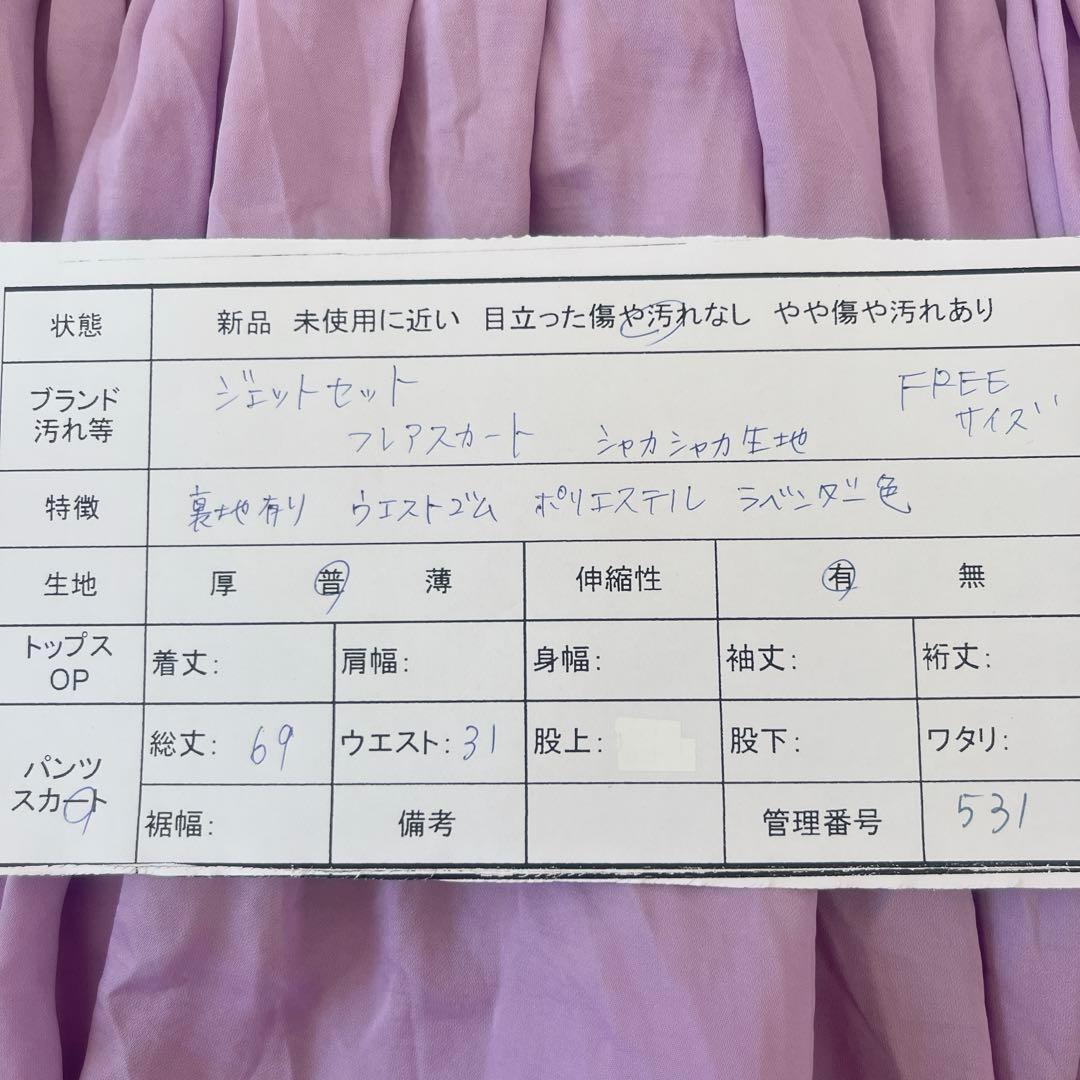 状態 新品 未使用に近い 目立った傷や汚れなし やや傷や汚れあり
ブランド
汚れ等
ジェットセット FREE
サイズ
フレアスカート シャカシャカ生地
特徴 裏地有り ウエストゴム ポリエステル ラベンダー色
生地 厚 普 薄 伸縮性 有 無
トップス
OP
着丈: 肩幅: 身幅: 袖丈: 裄丈:
パンツ
スカート
総丈: 69 ウエスト: 31 股上: 股下: ワタリ:
裾幅: 備考 管理番号 531